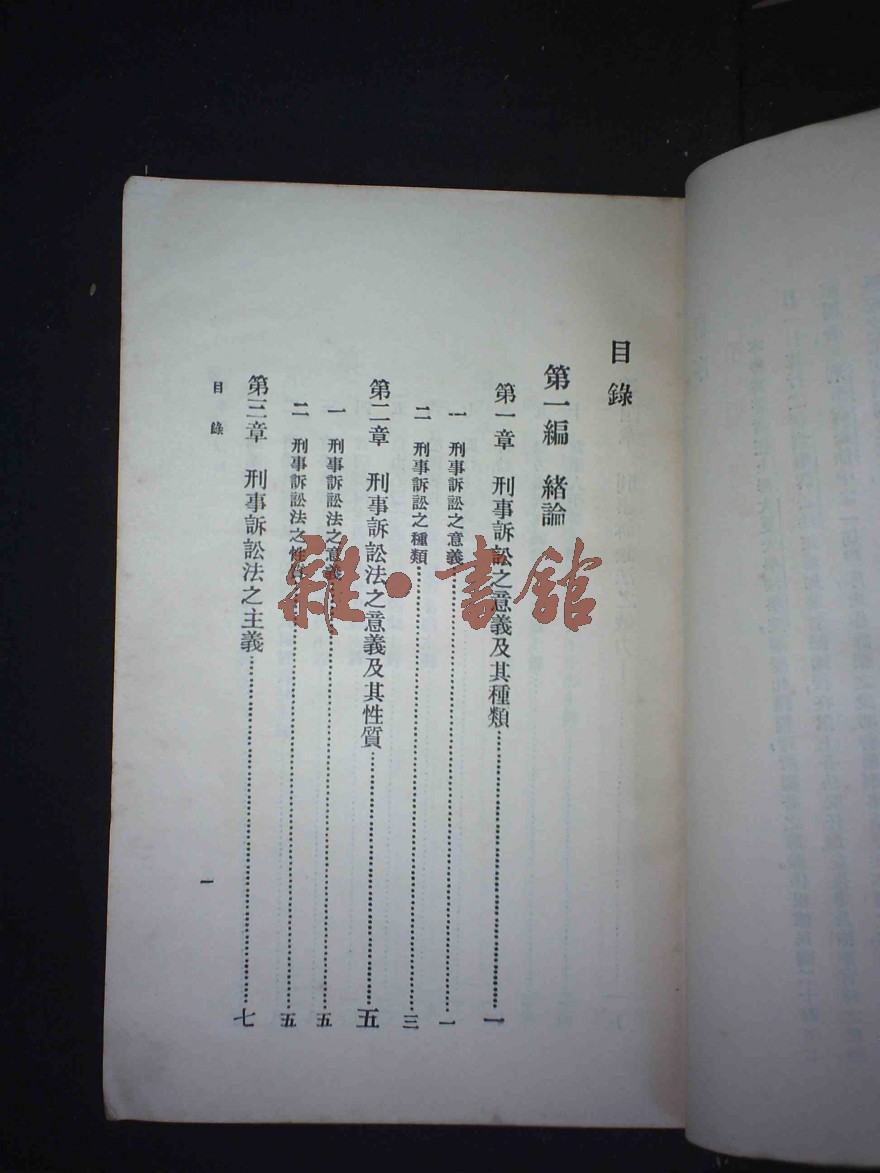 目錄
第一編　緒論
第一章　刑事訴訟之意義及其種類…………一
一　刑事訴訟之意義…………一
二　刑事訴訟之種類…………三
第二章　刑事訴訟法之意義及其性質…………五
一　刑事訴訟法之意義…………五
二　刑事訴訟法之性質…………五
第三章　刑事訴訟法之主義…………七
目錄
一
雜·書館